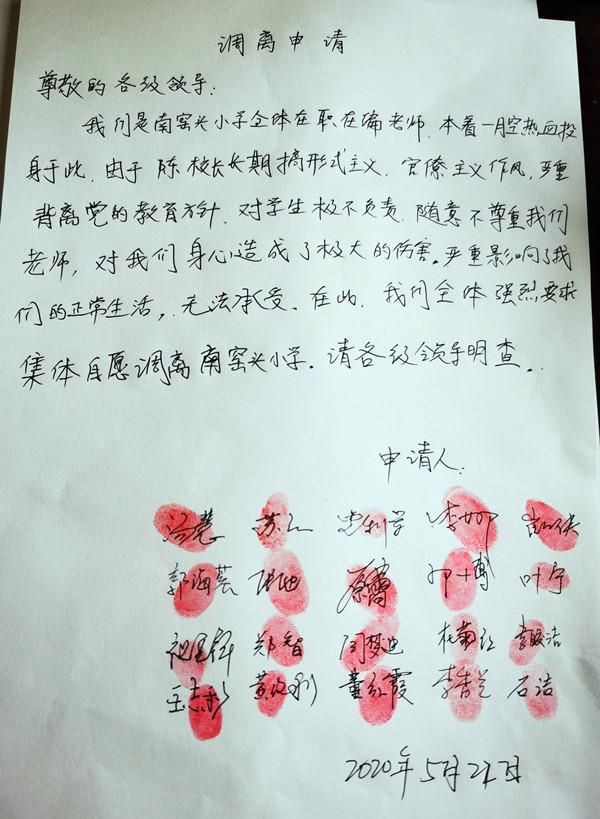 调离申请
尊敬的各级领导:
我们是南窑头小学全体在职在编老师.本着一腔热血投
身于此.由于陈校长长期搞形式主义.官僚主义作风,严重
背离党的教育方针.对学生极不负责.随意不尊重我们
老师,对我们身心造成了极大的伤害。严重影响了我
们的正常生活,无法承受.在此.我们全体强烈要求
集体自愿调离南窑头小学.请各级领导明查.
申请人:
郭海芸 叶宁
郑智 闫梦迪
董红霞 李香兰 石洁
2020年5月21日